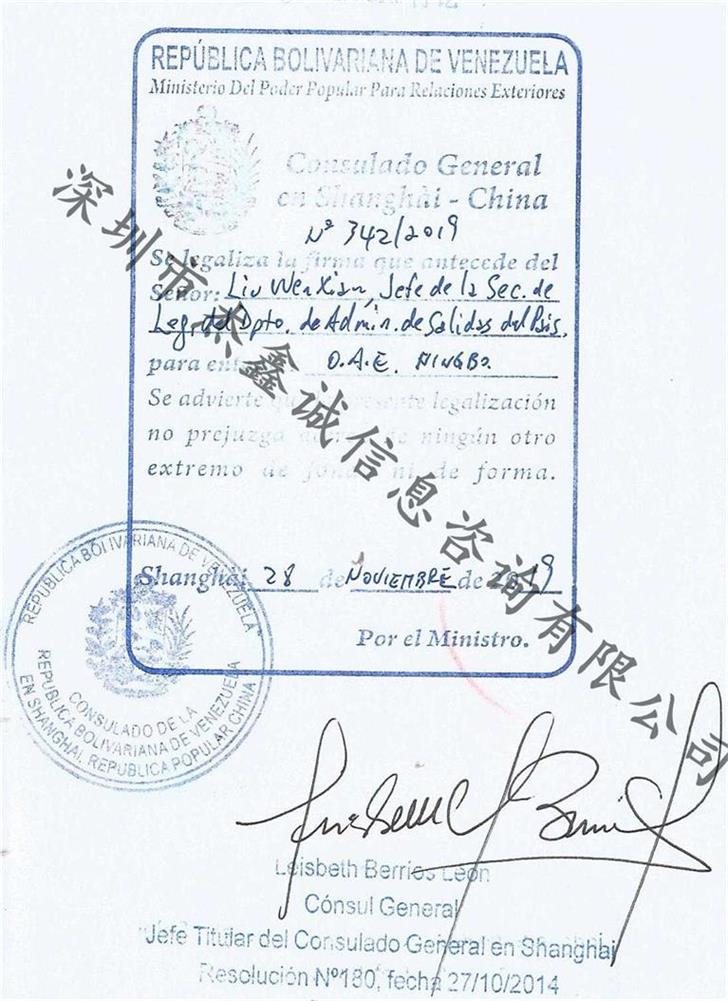 REPÚBLICA BOLIVARIANA DE VENEZUELA
Ministerio Del Poder Popular Para Relaciones Exteriores
Consulado General
en Shanghài - China
Nº 342/2019
Se legaliza la firma que antecede del
Señor: Liu WenXian, Jefe de la Sec. de
Leg. del Dpto. de Admin. de Salidas del País.
para en O.A.E. NINGBO.
Se advierte que presente legalización
no prejuzga de ningún otro
extremo de fondo ni de forma.
Shanghai 28 de NOVIEMBRE de 2019
Por el Ministro.
REPÚBLICA BOLIVARIANA DE VENEZUELA
CONSULADO DE LA
REPUBLICA BOLIVARIANA DE VENEZUELA
EN SHANGHAI, REPUBLICA POPULAR CHINA
Leisbeth Berrios León
Cónsul General
Jefe Titular del Consulado General en Shanghai
Resolución Nº180, fecha 27/10/2014
深圳市杰鑫诚信息咨询有限公司